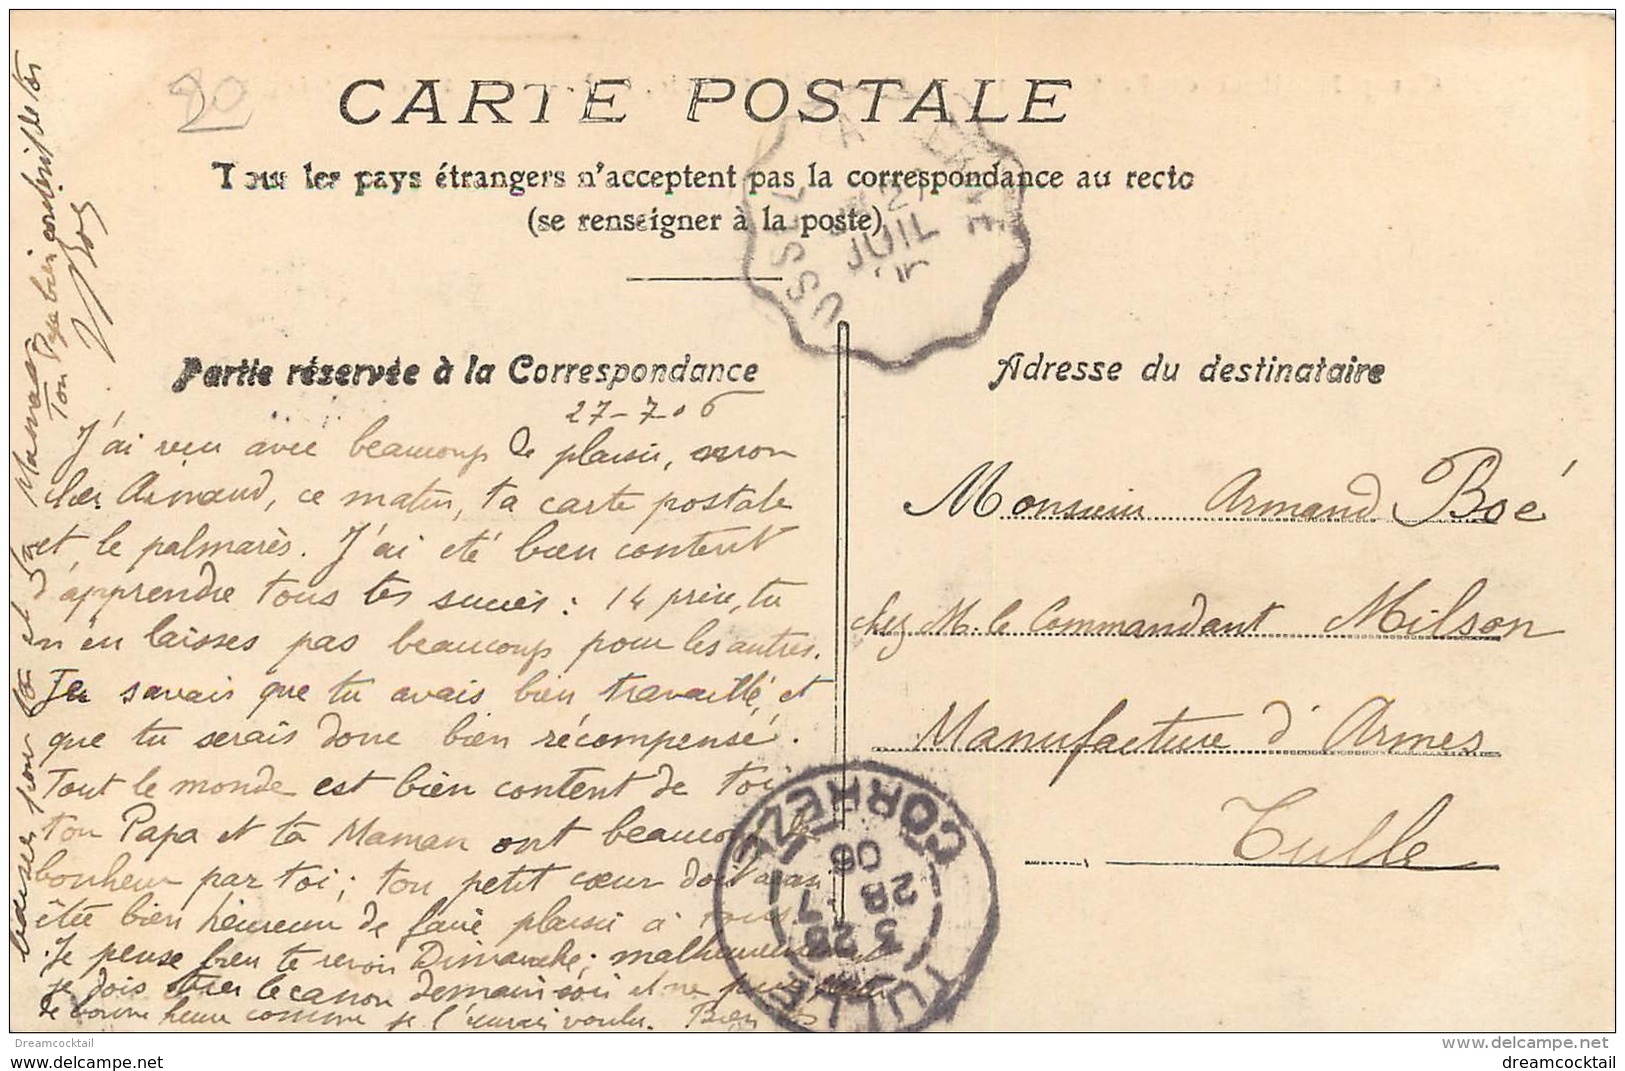 20
CARTE POSTALE
Tous les pays étrangers n'acceptent pas la correspondance au recto
(se renseigner à la poste)
USSEL
27
JUIL
Partie réservée à la Correspondance
Adresse du destinataire
27-7-06
J'ai reçu avec beaucoup de plaisir, mon
cher Armand, ce matin, ta carte postale
et le palmarès. J'ai été bien content
d'apprendre tous tes succès : 14 prix, tu
n'en laisses pas beaucoup pour les autres.
Je savais que tu avais bien travaillé, et
que tu serais donc bien récompensé.
Tout le monde est bien content de toi,
ton Papa et ta Maman ont beaucoup de
bonheur par toi ; ton petit cœur doit
être bien heureux de faire plaisir à tous.
Je pense bien te revoir Dimanche ; malheureusement
je dois tirer le canon demain soir et ne puis
de bonne heure comme je l'aurais voulu. Bien des
baisers pour toi et ta Maman
Ton Papa bien
Boé
Monsieur Armand Boé
chez M. le Commandant Milson
Manufacture d'Armes
Tulle
TULLE
CORREZE
3 28
28 7
06
Dreamcocktail
dreamcocktail
www.delcampe.net
dreamcocktail